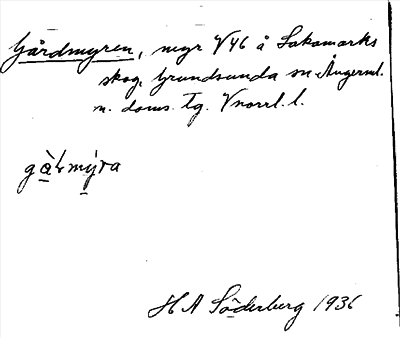 Gårdmyren, myr V46 å Sakamarks
skog, Grundsunda sn. Ångerml.
n. doms. Tg. Vnorrl. l.
gàɽmýra
H A Söderberg 1936